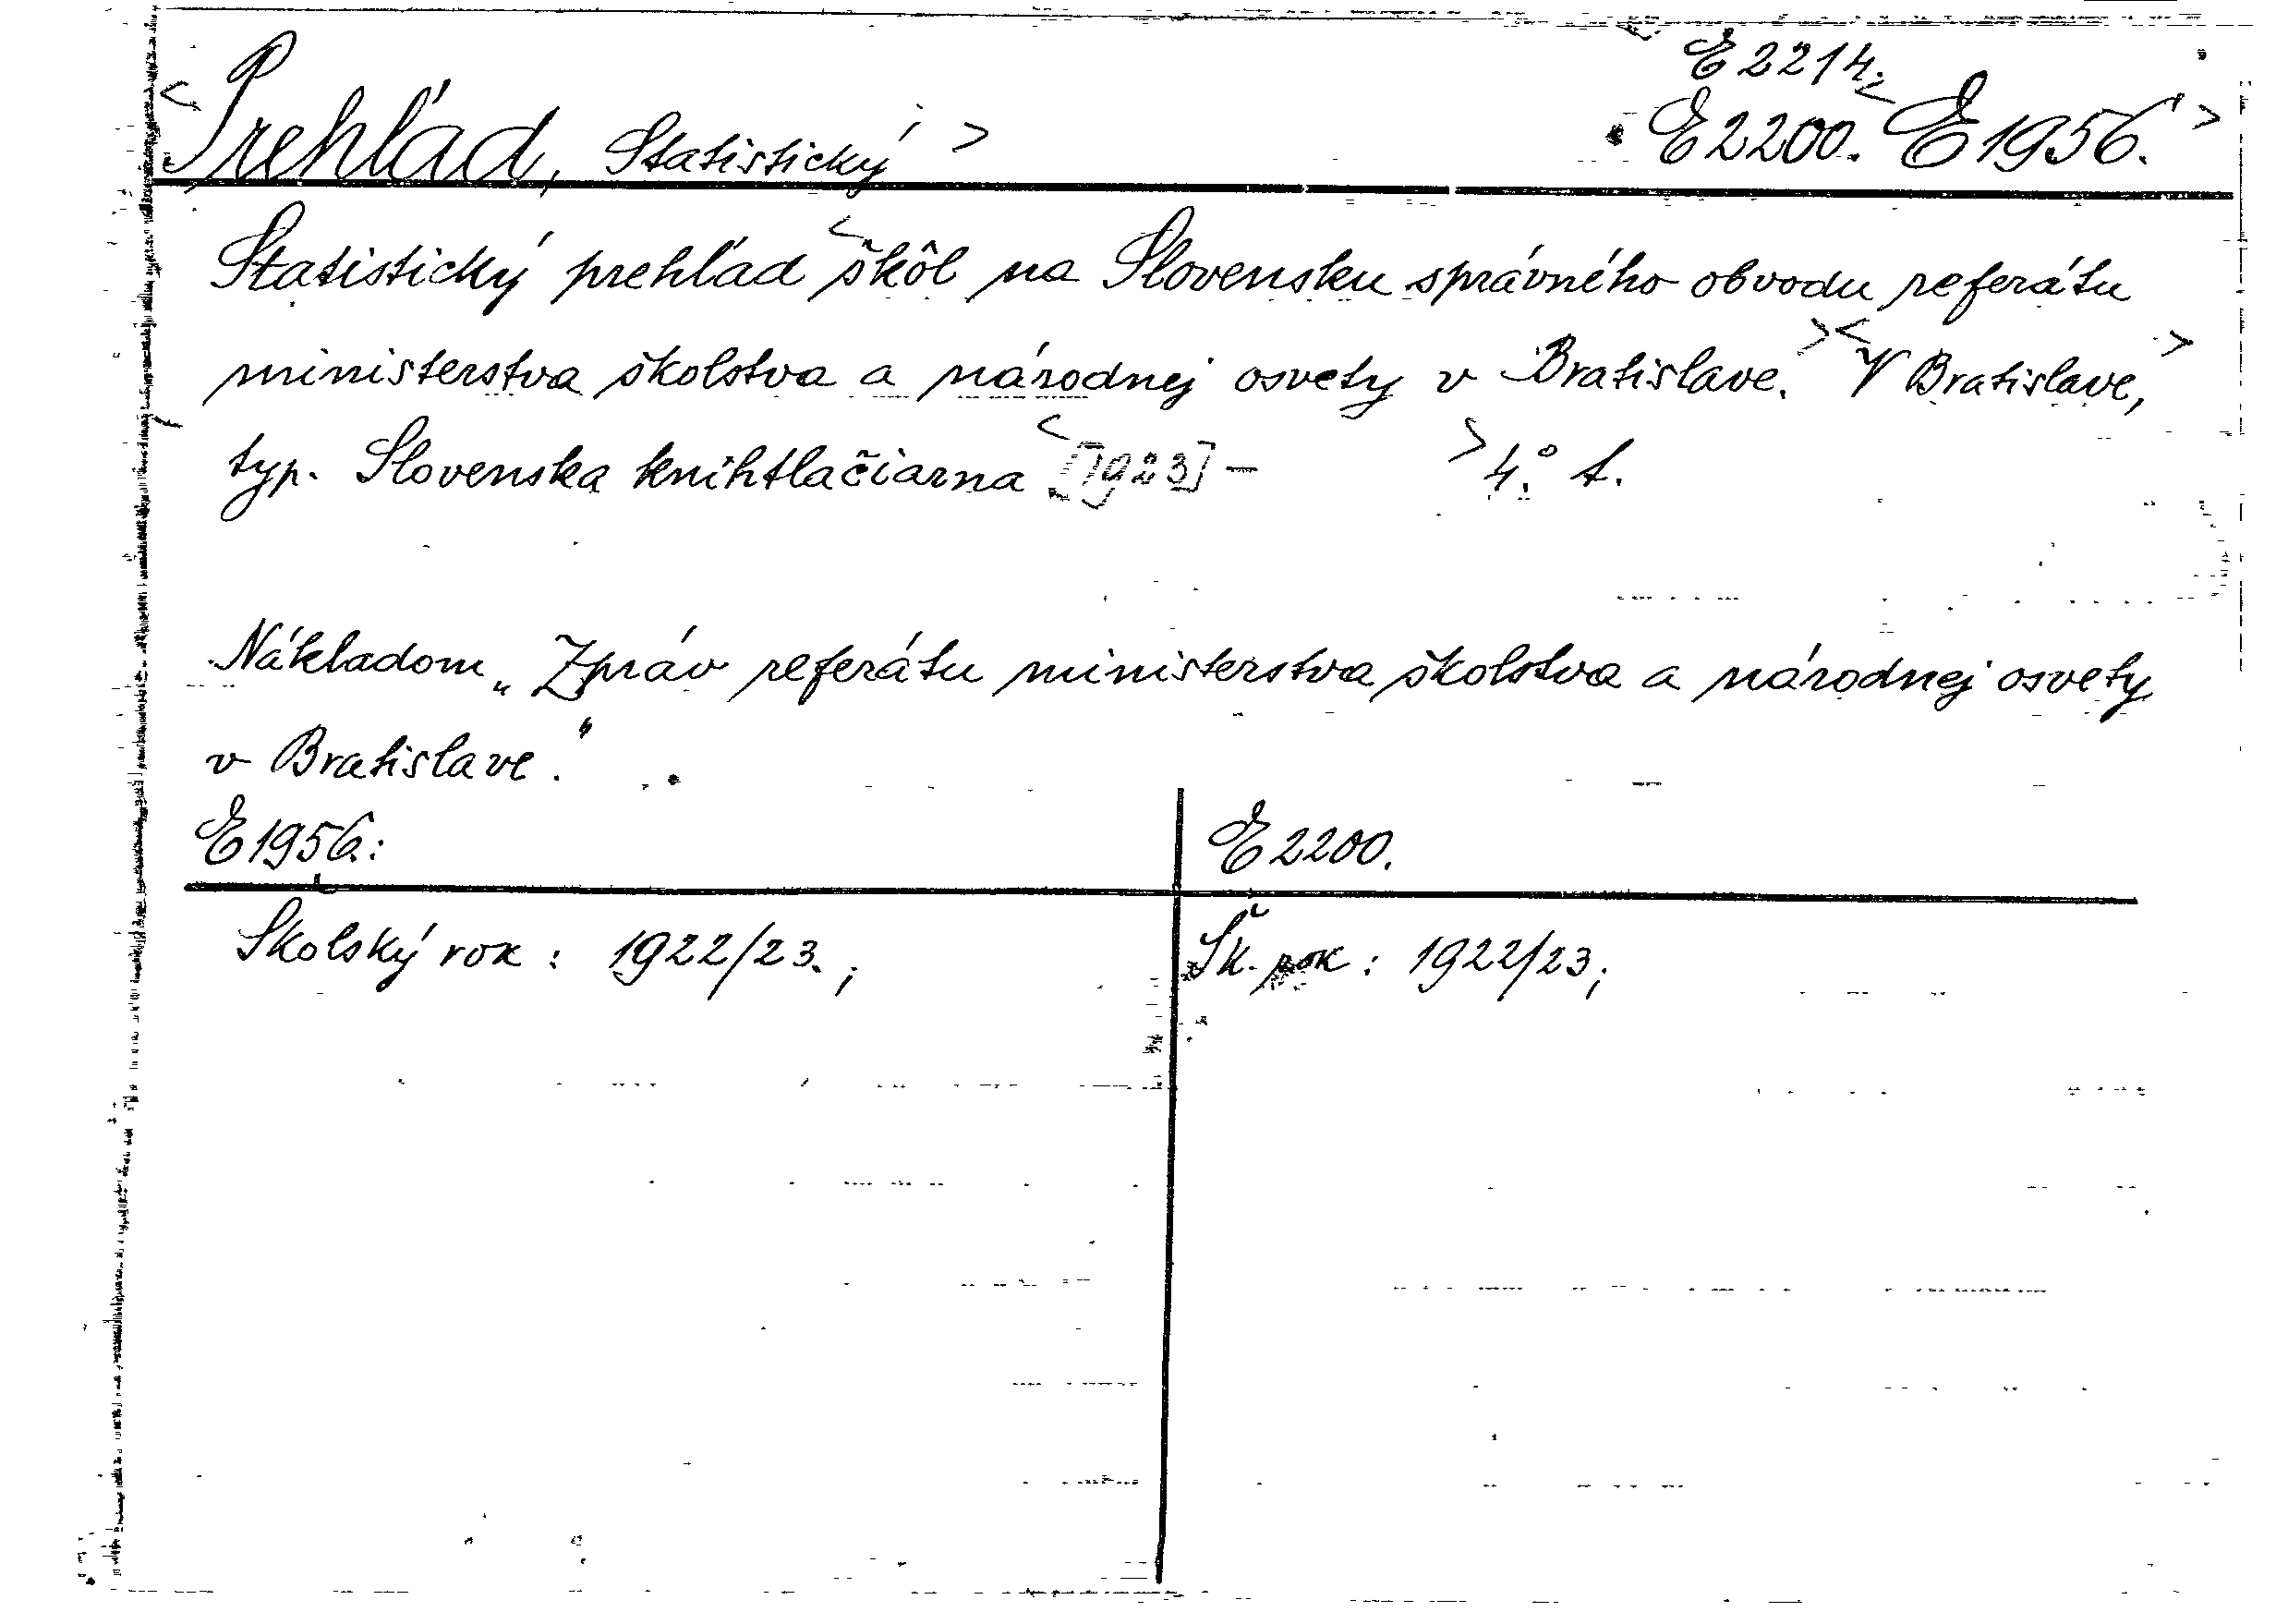 E 2214.
<Prehľad, Statistický> E 2200. <E 1956.>
Statistický prehľad <škôl na Slovensku správného obvodu referátu
ministerstva školstva a národnej osvety v Bratislave.> <V Bratislave,>
typ. Slovenska knihtlačiarna <[1923] - > 4.° t.
Nákladom „Zpráv referátu ministerstva školstva a národnej osvety
v Bratislave."
E 1956.: E 2200.
Školský rok : 1922/23. ; Šk. rok : 1922/23 ;